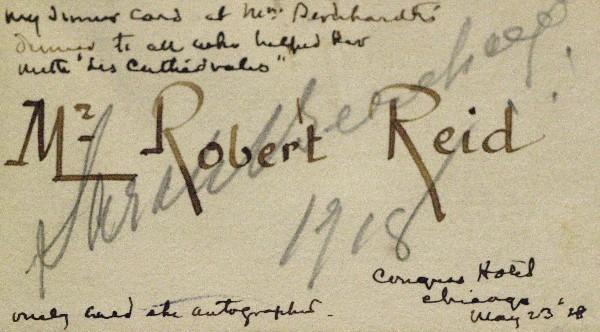 my dinner card at Mme Bernhardt's
dinner to all who helped her
with "Les Cathédrales"
Mr Robert Reid
Sarah Bernhardt
1918
Congress Hotel
Chicago
May 23 '18
only card she autographed.